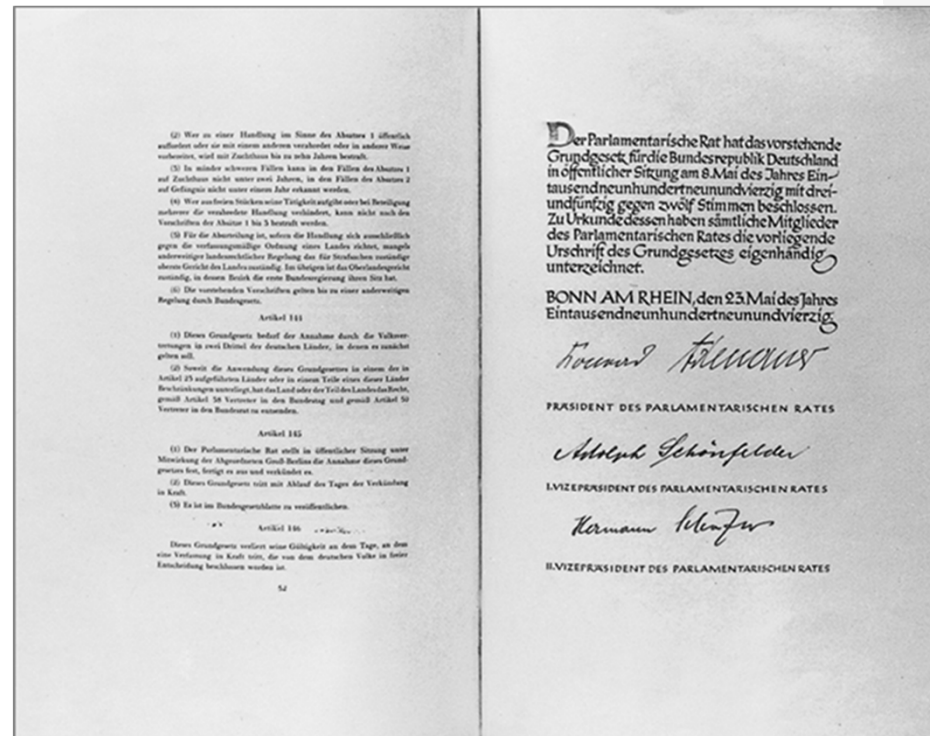 (2) Wer zu einer Handlung im Sinne des Absatzes 1 öffentlich
auffordert oder sie mit einem anderen verabredet oder in anderer Weise
vorbereitet, wird mit Zuchthaus bis zu zehn Jahren bestraft.
(3) In minder schweren Fällen kann in den Fällen des Absatzes 1
auf Zuchthaus nicht unter zwei Jahren, in den Fällen des Absatzes 2
auf Gefängnis nicht unter einem Jahr erkannt werden.
(4) Wer aus freien Stücken seine Tätigkeit aufgibt oder bei Beteiligung
mehrerer die verabredete Handlung verhindert, kann nicht nach den
Vorschriften der Absätze 1 bis 3 bestraft werden.
(5) Für die Aburteilung ist, sofern die Handlung sich ausschließlich
gegen die verfassungsmäßige Ordnung eines Landes richtet, mangels
anderweitiger landesrechtlicher Regelung das für Strafsachen zuständige
oberste Gericht des Landes zuständig. Im übrigen ist das Oberlandesgericht
zuständig, in dessen Bezirk die erste Bundesregierung ihren Sitz hat.
(6) Die vorstehenden Vorschriften gelten bis zu einer anderweitigen
Regelung durch Bundesgesetz.
Artikel 144
(1) Dieses Grundgesetz bedarf der Annahme durch die Volksver-
tretungen in zwei Drittel der deutschen Länder, in denen es zunächst
gelten soll.
(2) Soweit die Anwendung dieses Grundgesetzes in einem der in
Artikel 23 aufgeführten Länder oder in einem Teile eines dieser Länder
Beschränkungen unterliegt, hat das Land oder der Teil des Landes das Recht,
gemäß Artikel 38 Vertreter in den Bundestag und gemäß Artikel 50
Vertreter in den Bundesrat zu entsenden.
Artikel 145
(1) Der Parlamentarische Rat stellt in öffentlicher Sitzung unter
Mitwirkung der Abgeordneten Groß-Berlins die Annahme dieses Grund-
gesetzes fest, fertigt es aus und verkündet es.
(2) Dieses Grundgesetz tritt mit Ablauf des Tages der Verkündung
in Kraft.
(3) Es ist im Bundesgesetzblatte zu veröffentlichen.
Artikel 146
Dieses Grundgesetz verliert seine Gültigkeit an dem Tage, an dem
eine Verfassung in Kraft tritt, die von dem deutschen Volke in freier
Entscheidung beschlossen worden ist.
52
Der Parlamentarische Rat hat das vorstehende
Grundgesetz für die Bundesrepublik Deutschland
in öffentlicher Sitzung am 8. Mai des Jahres Ein-
tausendneunhundertneunundvierzig mit drei-
undfünfzig gegen zwölf Stimmen beschlossen.
Zu Urkunde dessen haben sämtliche Mitglieder
des Parlamentarischen Rates die vorliegende
Urschrift des Grundgesetzes eigenhändig
unterzeichnet.
BONN AM RHEIN, den 23. Mai des Jahres
Eintausendneunhundertneunundvierzig
Konrad Adenauer
PRÄSIDENT DES PARLAMENTARISCHEN RATES
Adolph Schönfelder
I. VIZEPRÄSIDENT DES PARLAMENTARISCHEN RATES
Hermann Schäfer
II. VIZEPRÄSIDENT DES PARLAMENTARISCHEN RATES